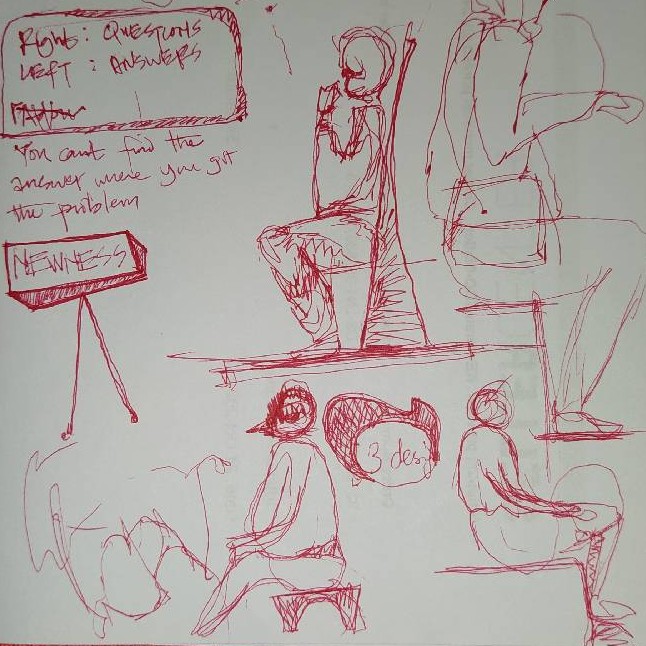 Right: QUESTIONS
LEFT: ANSWERS
You cant find the
answer where you got
the problem
NEWNESS
3 desi